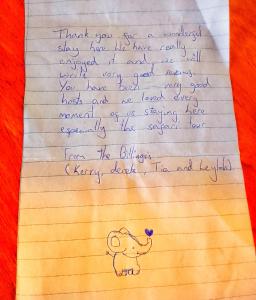 Thank you for a wonderful
stay here we have really
enjoyed it and we will
write very good reviews.
You have been very good
hosts and we loved every
moment of us staying here
especially the safari tour
From The Billiggs
(Kerry, derek, Tia and Leylah)